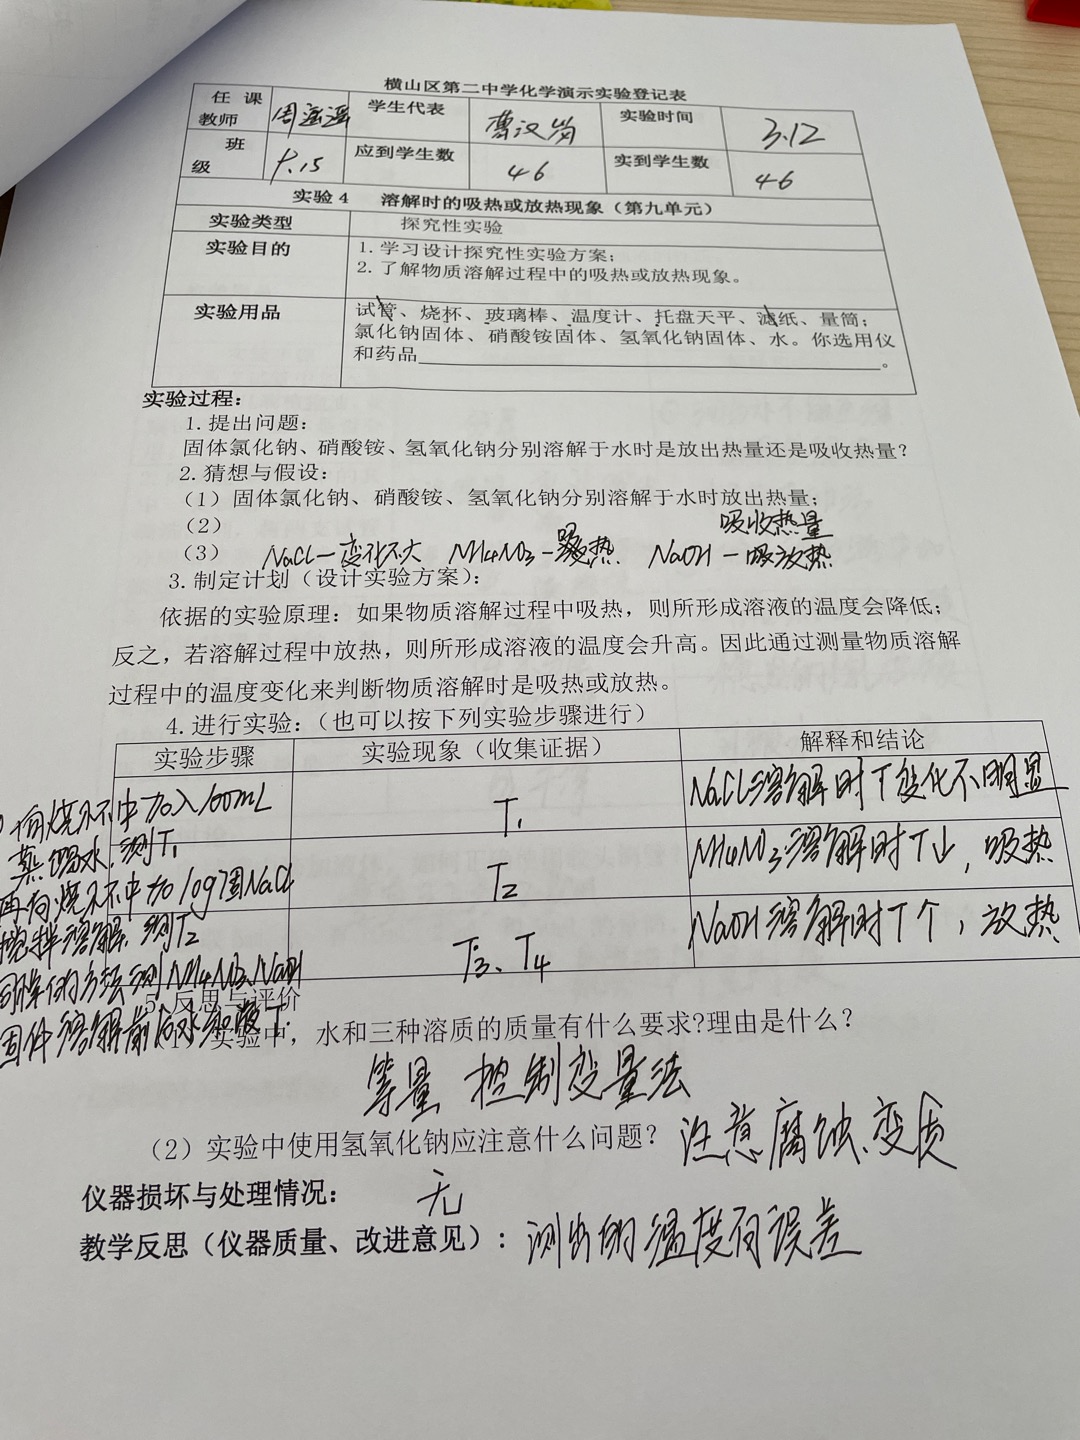 横山区第二中学化学演示实验登记表
任课教师 周遥遥 学生代表 曹汉岗 实验时间 3.12
班级 9.15 应到学生数 46 实到学生数 46
实验4 溶解时的吸热或放热现象（第九单元）
实验类型 探究性实验
实验目的 1.学习设计探究性实验方案；
2.了解物质溶解过程中的吸热或放热现象。
实验用品 试管、烧杯、玻璃棒、温度计、托盘天平、滤纸、量筒；
氯化钠固体、硝酸铵固体、氢氧化钠固体、水。你选用仪
和药品________。
实验过程：
1.提出问题：
固体氯化钠、硝酸铵、氢氧化钠分别溶解于水时是放出热量还是吸收热量？
2.猜想与假设：
（1）固体氯化钠、硝酸铵、氢氧化钠分别溶解于水时放出热量；
（2） 吸收热量
（3） NaCl—变化不大 NH4NO3—吸热 NaOH—放热
3.制定计划（设计实验方案）：
依据的实验原理：如果物质溶解过程中吸热，则所形成溶液的温度会降低；
反之，若溶解过程中放热，则所形成溶液的温度会升高。因此通过测量物质溶解
过程中的温度变化来判断物质溶解时是吸热或放热。
4.进行实验：（也可以按下列实验步骤进行）
实验步骤 实验现象（收集证据） 解释和结论
向烧杯中加入100mL
蒸馏水，测T1
T1
NaCl溶解时T变化不明显
再向烧杯中加10g固NaCl
搅拌溶解，测T2
T2
NH4NO3溶解时T↓，吸热
同样的方法测NH4NO3、NaOH
固体溶解前后水和液T
T3、T4
NaOH溶解时T↑，放热
5.反思与评价
（1）实验中，水和三种溶质的质量有什么要求?理由是什么？
等量 控制变量法
（2）实验中使用氢氧化钠应注意什么问题？ 注意腐蚀、变质
仪器损坏与处理情况： 无
教学反思（仪器质量、改进意见）: 测出的温度有误差